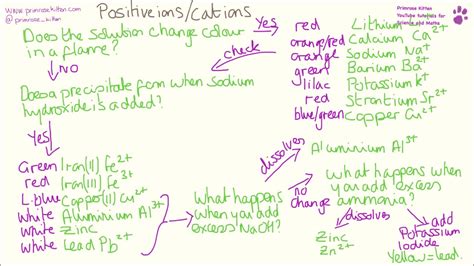 www.primrosekitten.com
@primrose_kitten
Positive ions/cations
Primrose Kitten
YouTube tutorials for
Science and Maths
Does the solution change colour
in a flame?
Yes
red Lithium
orange/red Calcium Ca²⁺
orange Sodium Na⁺
green Barium Ba²⁺
lilac Potassium K⁺
red Strontium Sr²⁺
blue/green Copper Cu²⁺
check
NO
Does a precipitate form when sodium
hydroxide is added?
Yes
Green Iran(II) Fe²⁺
red Iran(III) Fe³⁺
L.blue Copper(II) Cu²⁺
white Aluminium Al³⁺
white Zinc Zn²⁺
white Lead Pb²⁺
What happens
when you add
excess
NaOH?
dissolves
Aluminium Al³⁺
no
change
what happens when
you add excess
ammonia?
dissolves
Zinc
Zn²⁺
add
Potassium
Iodide
Yellow=lead